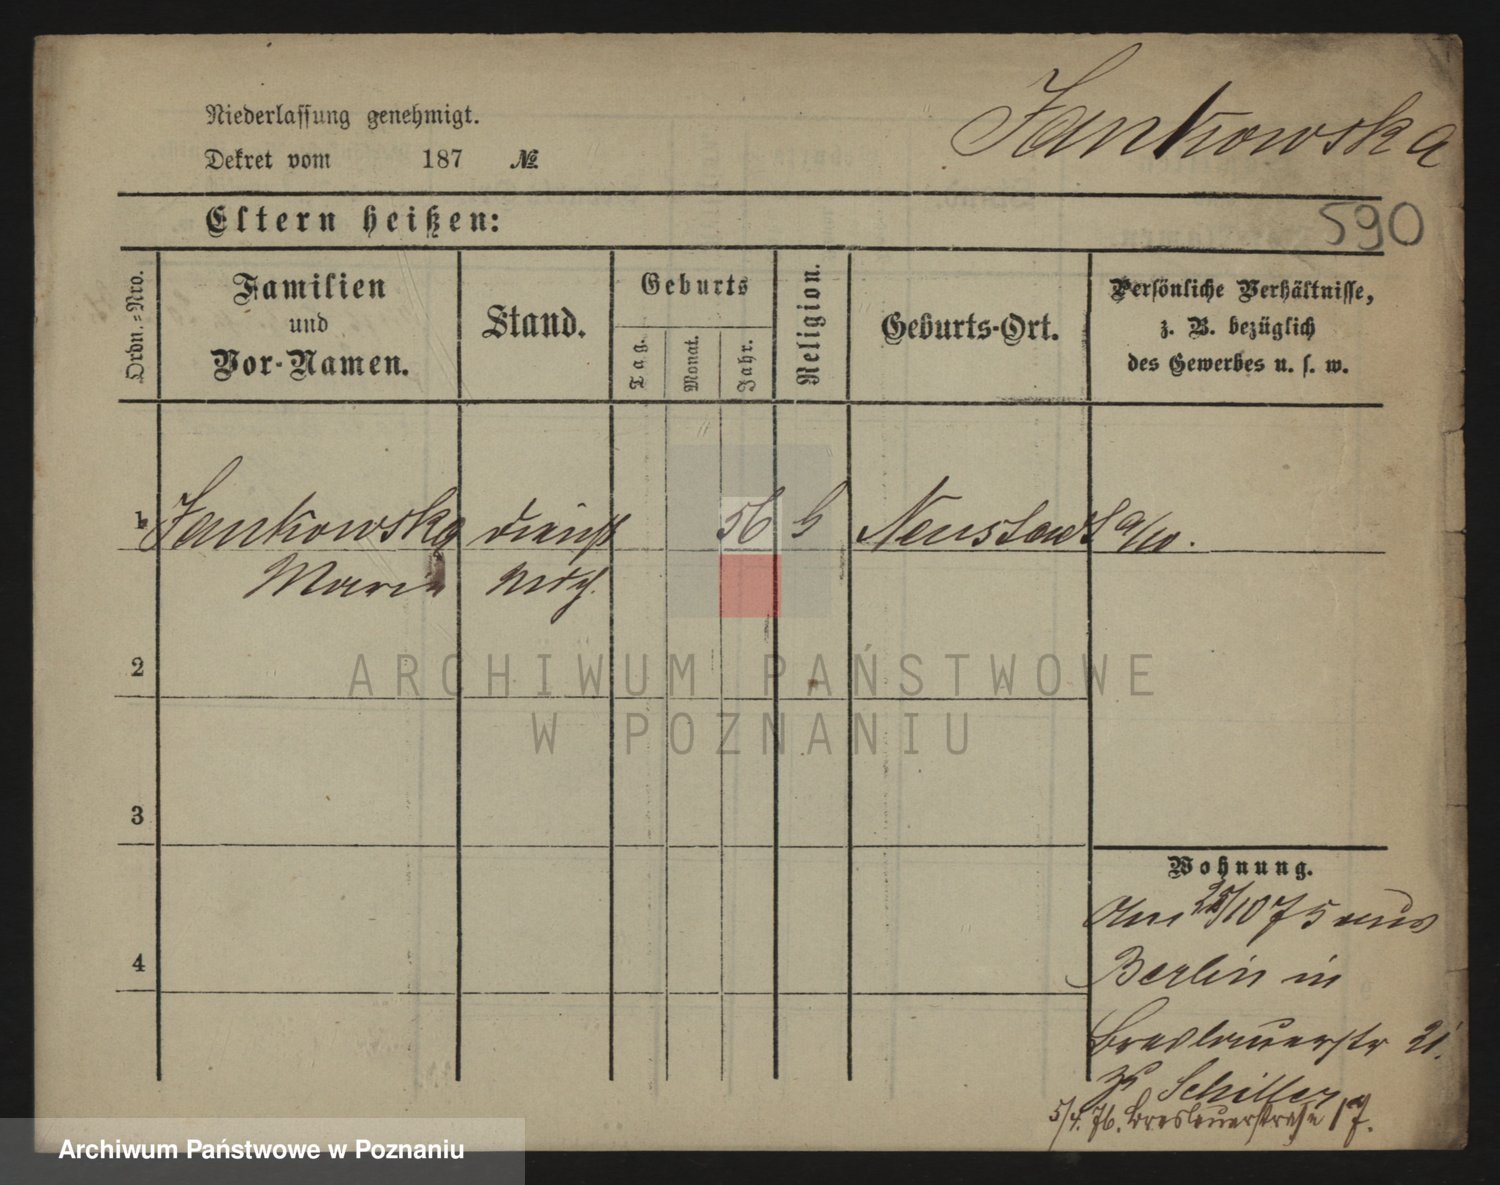 Jankowska
Niederlassung genehmigt.
Dekret vom 187 №
Eltern heißen:
590
Ordn.-Nro.
Familien
und
Vor-Namen.
Stand.
Geburts
Tag.
Monat.
Jahr.
Religion.
Geburts-Ort.
Persönliche Verhältnisse,
z. B. bezüglich
des Gewerbes u. s. w.
1 Jankowska dienst 56 Neustadt a/W.
Maria
2
ARCHIWUM PAŃSTWOWE
W POZNANIU
3
Wohnung.
Am 25/10 75 aus
4
Berlin in
Breslauerstr 21.
Schiller
5/4. 76. Breslauerstraße 17.
Archiwum Państwowe w Poznaniu